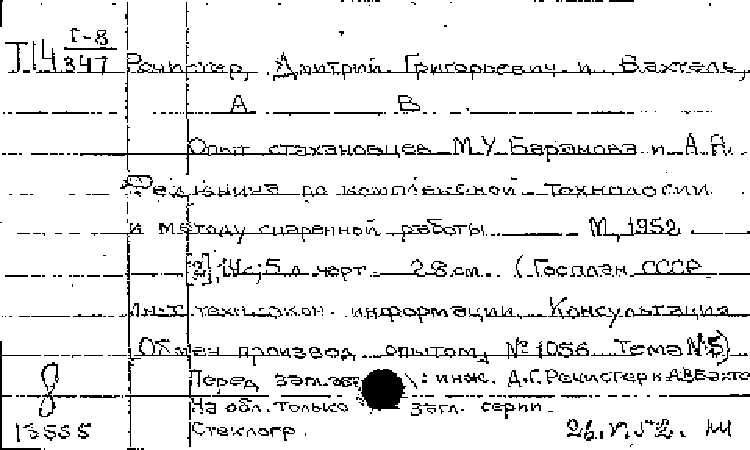 Г-8
Т14 347 Речистер, Дмитрий Григорьевич и Вахтель,
А В
Опыт стахановцев М.У. Баранова и А.А.
по комплексной технологии
и методу спаренной работы М, 1952
14с; 5 л черт. 28 см. (Госплан СССР
Ин-т техн.-экон. информации. Консультация
Обмен производ. опытом, № 1056 Тема № 5)
Перед : инж. Д.Г. Речистер и А.В. Вахте
На обл. только загл. серии.
8
Стеклогр.